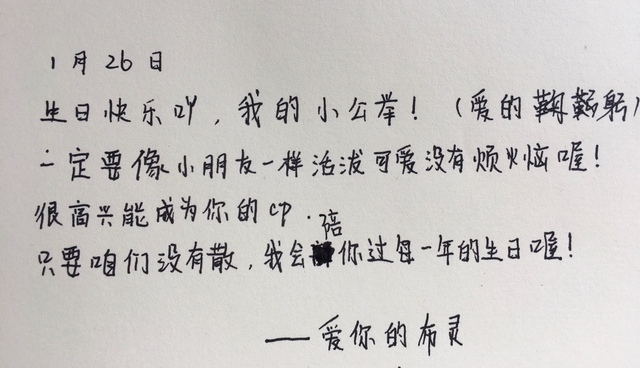 1月26日
生日快乐吖，我的小公举！（爱的鞠鞠躬）
一定要像小朋友一样活泼可爱没有烦火恼喔！
很高兴能成为你的cp.
只要咱们没有散，我会陪你过每一年的生日喔！
——爱你的布灵